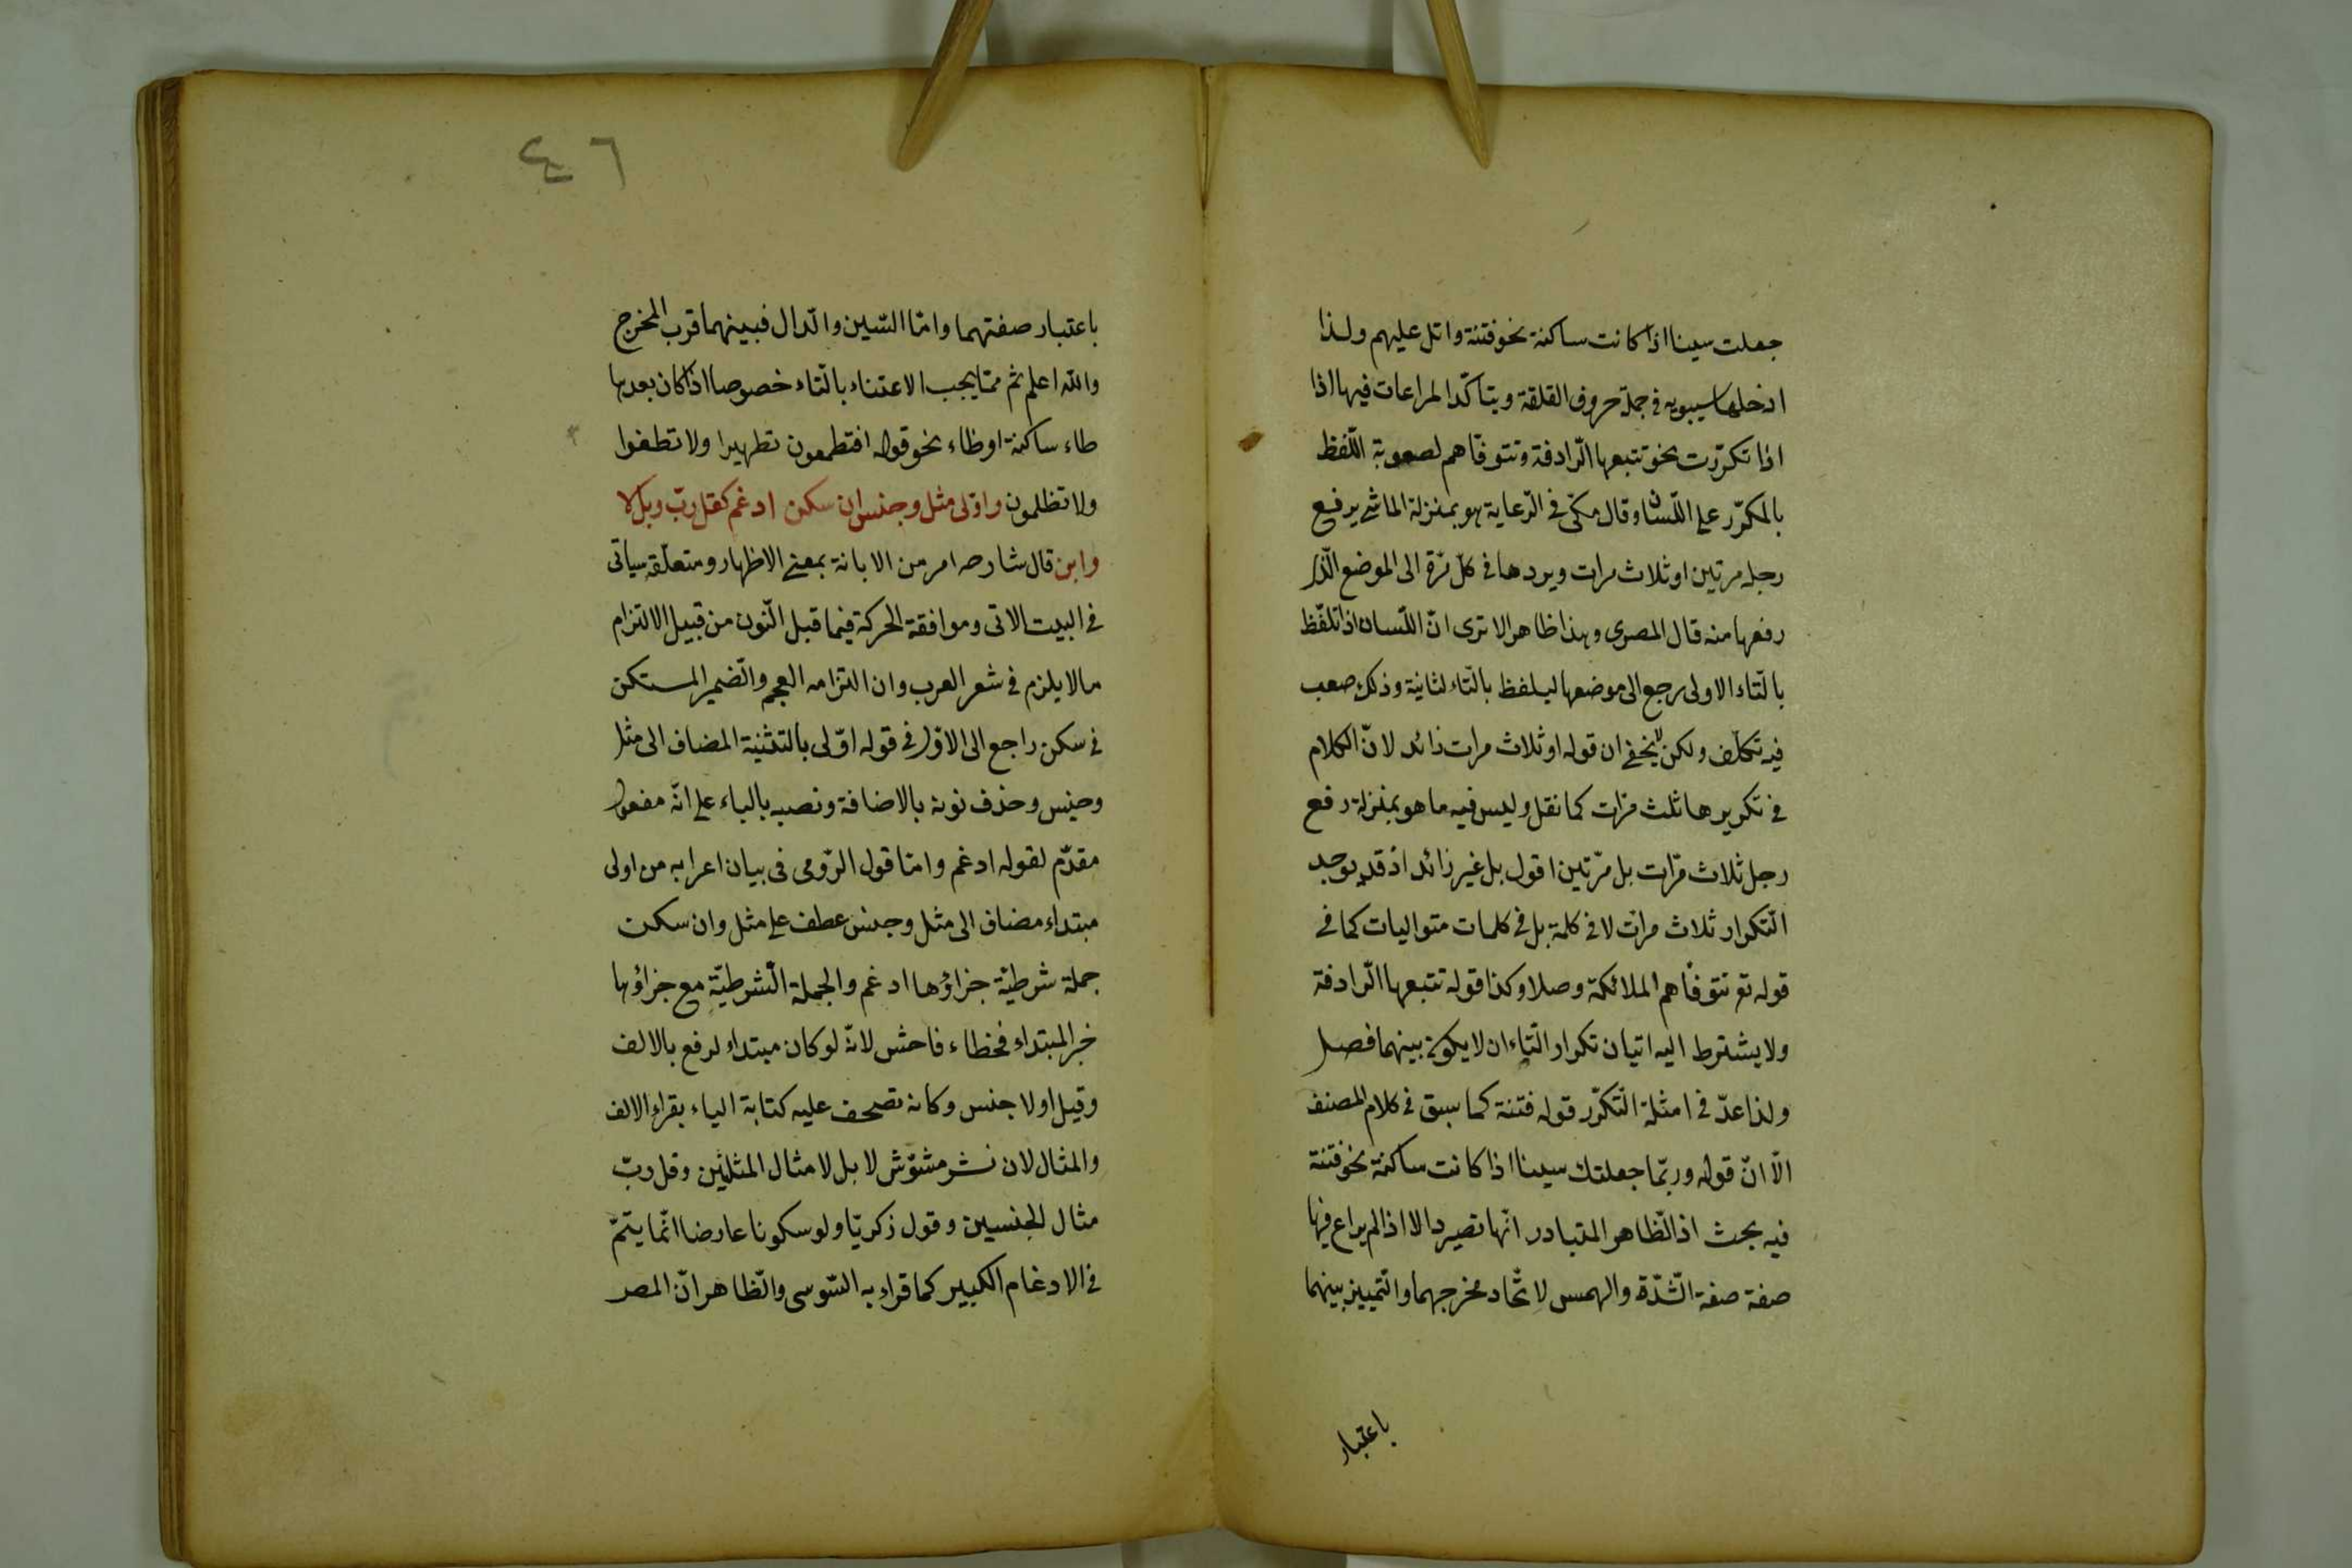 جعلت سينا اذا كانت ساكنة نحو فتنة واتل عليهم ولذا
ادخلها سيبويه في جملة حروف القلقة ويتاكّد المراعات فيها اذا
اذا تكرّرت نحو تتبعها الرّادفة وتتوفّاهم لصعوبة اللّفظ
بالمكرّر على اللّسان وقال مكّى في الرّعاية هو بمنزلة الماشى يرفع
رجله مرتين او ثلاث مرات ويردها في كلّ مرّة الى الموضع الّذى
رفعها منه قال المصرى وهذا ظاهر الا ترى انّ اللّسان اذا تلفّظ
بالتّاء الاولى رجع الى موضعها ليلفظ بالتّاء لثانية وذلك صعب
فيه تكلّف ولكن لا يخفى ان قوله او ثلاث مرات زائد لانّ الكلام
في تكريرها ثلث مرّات كما نقل وليس فيه ما هو بمنزلة رفع
رجل ثلاث مرّات بل مرّتين اقول بل غير زائد اذ قد يوجد
التّكرار ثلاث مرات لا في كلمة بل في كلمات متواليات كما في
قوله تع تتوفّاهم الملائكة وصلا وكذا قوله تتبعها الرّادفة
ولا يشترط اليه اتيان تكرار التّاء ان لا يكون بينهما فصل
ولذا عدّ في امثلة التّكرّر قوله فتنة كما سبق في كلام المصنف
الّا انّ قوله وربّما جعلتك سينا اذا كانت ساكنة نحو فتنة
فيه بحث اذ الظّاهر المتبادر انّها تصير دالا اذا لم يراع فيها
صفة صفة الشّدّة والهمس لاتّحاد مخرجهما والتّمييز بينهما
باعتبار
٤٦
باعتبار صفتهما وامّا السّين والدّال فبينهما قرب المخرج
والله اعلم ثم ممّا يجب الاعتناء بالتّاء خصوصا اذا كان بعدها
طاء ساكنة او ظاء نحو قوله افتطمعون تطهيرا ولا تطغوا
ولا تظلمون واوّلى مثل وجنس ان سكن ادغم كقل ربّ وبل لا
وابن قال شارحه امر من الابانة بمعنى الاظهار ومتعلّقه سياتى
في البيت الاتى وموافقة الحركة فيما قبل النّون من قبيل الالتزام
مالا يلزم في شعر العرب وان التزامه العجم والضّمير المستكن
في سكن راجع الى الاوّل في قوله اوّلى بالتثنية المضاف الى مثل
وجنس وحذف نونه بالاضافة ونصبه بالياء على انّه مفعول
مقدّم لقوله ادغم وامّا قول الرّومى في بيان اعرابه من اولى
مبتداء مضاف الى مثل وجنس عطف على مثل وان سكن
جملة شرطيّة جزاؤها ادغم والجملة الشّرطيّة مع جزاؤها
خبر المبتداء فخطاء فاحش لانّه لو كان مبتداء لرفع بالالف
وقيل اولا جنس وكانه تصحف عليه كتابة الياء بقراء الالف
والمثال لان نشر مشوّش لا بل لا مثال المثلين وقل ربّ
مثال الجنسين وقول زكريّا ولو سكونا عارضا انّما يتمّ
في الادغام الكبير كما قراء به السّوسى والظّاهر انّ المص